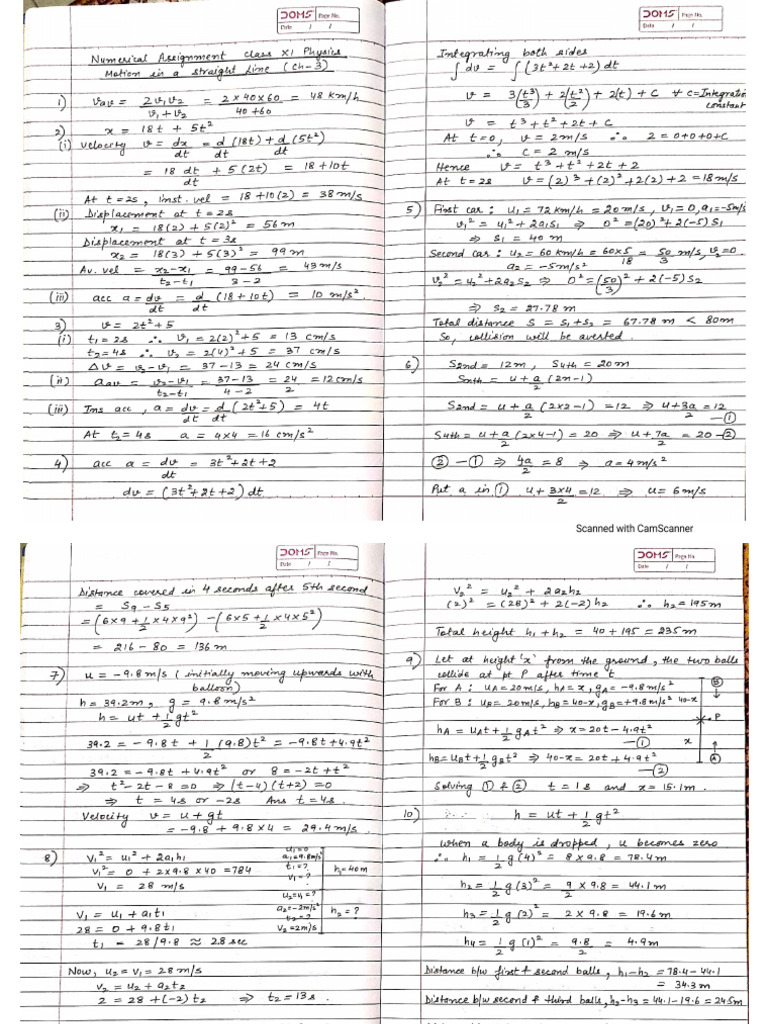 DOMS Page No.
Date / /
Numerical Assignment class XI Physics
Motion in a straight line (Ch-3)
1) Vav = 2v₁v₂/(v₁+v₂) = 2×40×60/(40+60) = 48 km/h
2) x = 18t + 5t²
(i) velocity v = dx/dt = d/dt (18t) + d/dt (5t²)
= 18 dt/dt + 5(2t) = 18+10t
At t=2s, inst. vel = 18+10(2) = 38 m/s
(ii) Displacement at t=2s
x₁ = 18(2)+5(2)² = 56 m
Displacement at t=3s
x₂ = 18(3)+5(3)² = 99 m
Av. vel = (x₂-x₁)/(t₂-t₁) = (99-56)/(3-2) = 43 m/s
(iii) acc a = dv/dt = d/dt (18+10t) = 10 m/s²
3) v = 2t²+5
(i) t₁=2s ∴ v₁ = 2(2)²+5 = 13 cm/s
t₂=4s ∴ v₂ = 2(4)²+5 = 37 cm/s
Δv = v₂-v₁ = 37-13 = 24 cm/s
(ii) aav = (v₂-v₁)/(t₂-t₁) = (37-13)/(4-2) = 24/2 = 12 cm/s²
(iii) Ins acc, a = dv/dt = d/dt (2t²+5) = 4t
At t₂=4s a = 4×4 = 16 cm/s²
4) acc a = dv/dt = 3t²+2t+2
dv = (3t²+2t+2) dt
DOMS Page No.
Date / /
Integrating both sides
∫dv = ∫(3t²+2t+2) dt
v = 3(t³/3) + 2(t²/2) + 2(t) + C ∀ C=Integratio
constant
v = t³+t²+2t+C
At t=0, v = 2m/s ∴ 2=0+0+0+C
∴ C = 2 m/s
Hence v = t³+t²+2t+2
At t=2s v = (2)³+(2)²+2(2)+2 = 18 m/s
5) First car: u₁ = 72 km/h = 20 m/s, v₁=0, a₁=-5m/s
v₁² = u₁²+2a₁s₁ ⇒ 0² = (20)²+2(-5) S₁
⇒ S₁ = 40 m
Second car: u₂ = 60 km/h = 60×5/18 = 50/3 m/s, v₂=0.
a₂ = -5m/s²
v₂² = u₂²+2a₂S₂ ⇒ 0² = (50/3)² + 2(-5)S₂
⇒ S₂ = 27.78 m
Total distance S = S₁+S₂ = 67.78 m < 80m
So, collision will be averted.
6) S2nd = 12m, S4th = 20m
Snth = u + a/2 (2n-1)
S2nd = u + a/2 (2×2-1) = 12 ⇒ u + 3a/2 = 12
—①
S4th = u + a/2 (2×4-1) = 20 ⇒ u + 7a/2 = 20 -②
② - ① ⇒ 4a/2 = 8 ⇒ a = 4m/s²
Put a in ① u + 3×4/2 = 12 ⇒ u = 6 m/s
Scanned with CamScanner
DOMS Page No.
Date / /
Distance covered in 4 seconds after 5th second
= S₉ - S₅
= (6×9 + 1/2 ×4×9²) - (6×5 + 1/2 ×4×5²)
= 216 - 80 = 136 m
7) u = -9.8 m/s (initially moving upwards with
balloon)
h = 39.2m, g = 9.8 m/s²
h = ut + 1/2 gt²
39.2 = -9.8t + 1/2 (9.8)t² = -9.8t+4.9t²
39.2 = -9.8t+4.9t² or 8 = -2t+t²
⇒ t²-2t-8=0 ⇒ (t-4)(t+2) = 0
⇒ t = 4s or -2s Ans t=4s.
Velocity v = u+gt
= -9.8+9.8×4 = 29.4 m/s
8) V₁² = u₁²+2a₁h₁
V₁² = 0+2×9.8×40 = 784
V₁ = 28 m/s
V₁ = u₁+a₁t₁
28 = 0+9.8t₁
t₁ = 28/9.8 ≈ 2.8 sec
u₁=0
a₁=9.8m/s²
t₁=?
V₁=?
h₁=40m
u₂=v₁=?
a₂=-2m/s²
t₂=?
V₂=2m/s
h₂=?
Now, u₂ = V₁ = 28 m/s
V₂ = u₂+a₂t₂
2 = 28+(-2)t₂ ⇒ t₂ = 13s.
DOMS Page No.
Date / /
V₂² = u₂² + 2a₂h₂
(2)² = (28)² + 2(-2)h₂ ∴ h₂ = 195 m
Total height h₁+h₂ = 40+195 = 235 m
9) Let at height 'x' from the ground, the two balls
collide at pt P after time t
For A: uA = 20m/s, hA = x, gA = -9.8m/s²
For B: uB = 20m/s, hB = 40-x, gB = +9.8m/s²
B
40-x
P
x
A
hA = uAt + 1/2 gAt² ⇒ x = 20t-4.9t²
—①
hB = uBt + 1/2 gBt² ⇒ 40-x = 20t+4.9t²
—②
Solving ① & ② t = 1s and x = 15.1m.
10) h = ut + 1/2 gt²
when a body is dropped, u becomes zero
∴ h₁ = 1/2 g(4)² = 8×9.8 = 78.4m
h₂ = 1/2 g(3)² = 9/2 ×9.8 = 44.1m
h₃ = 1/2 g(2)² = 2×9.8 = 19.6m
h₄ = 1/2 g(1)² = 9.8/2 = 4.9m
Distance b/w first & second balls, h₁-h₂ = 78.4-44.1
= 34.3m
Distance b/w second & third balls, h₂-h₃ = 44.1-19.6 = 24.5m